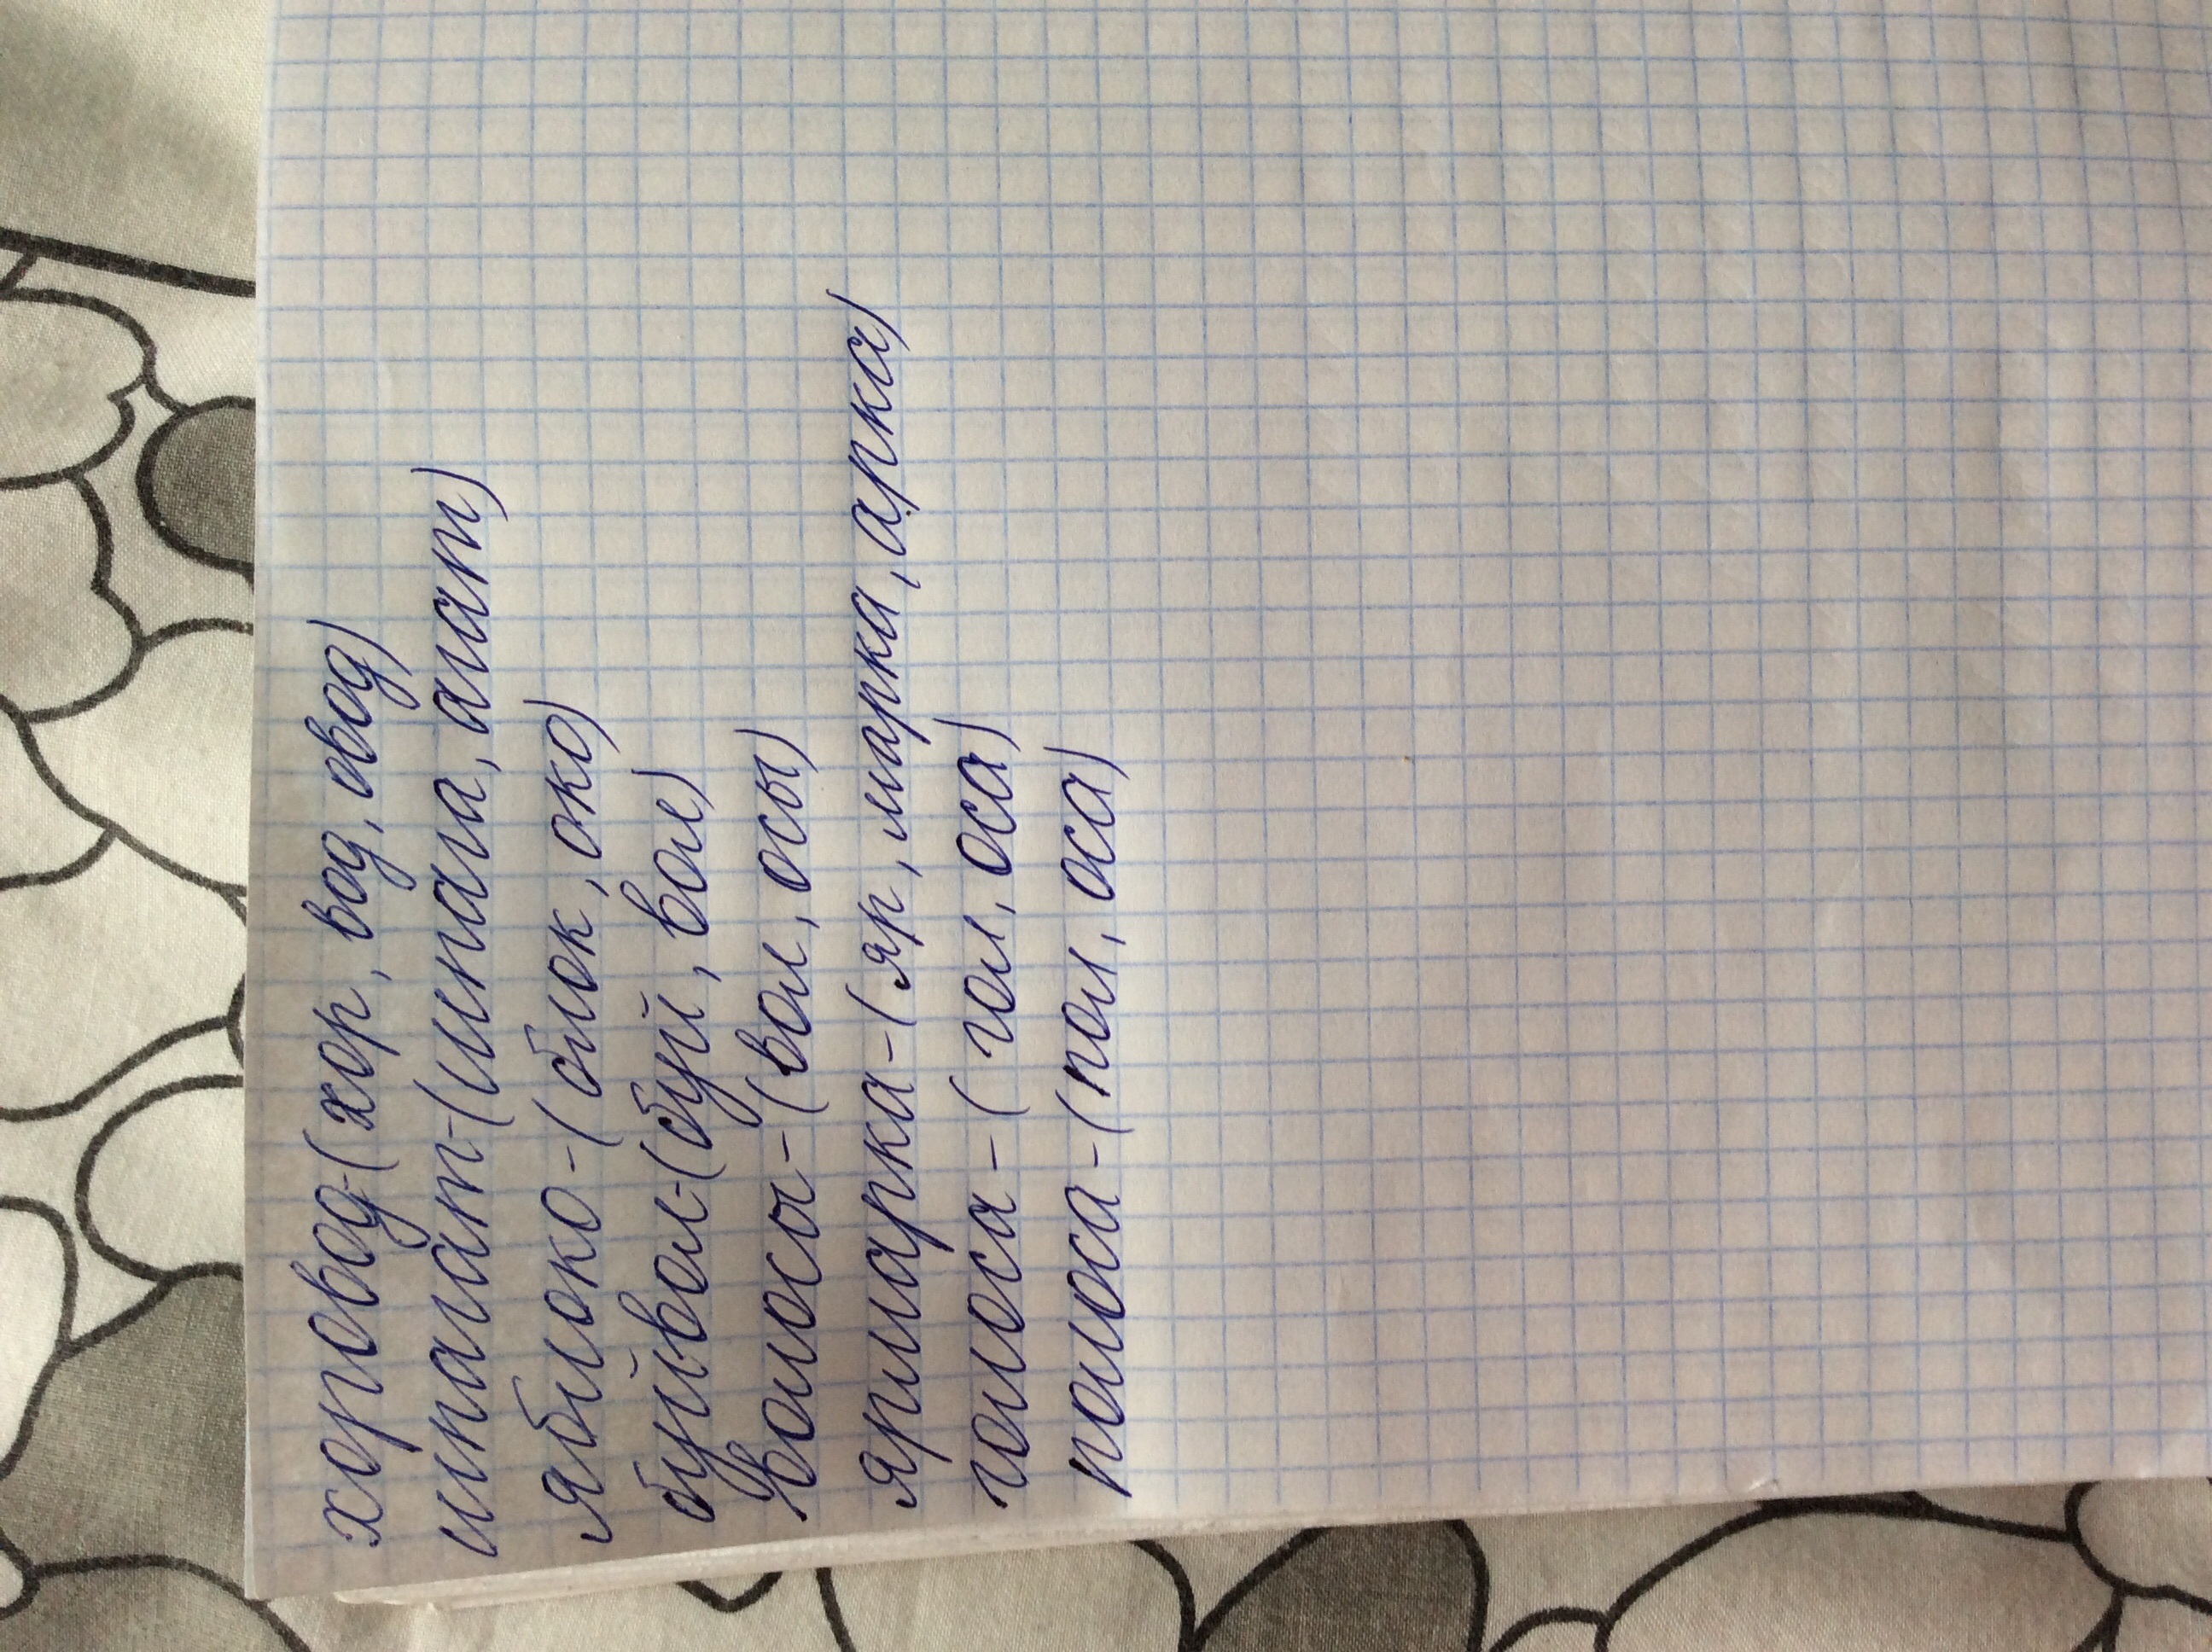 хоровод-(хор, вод, овод)
шпагат-(шпага, агат)
яблоко-(блок, око)
буйвол-(буй, вол)
волосы-(вол, осы)
ярмарка-(яр, марка, арка)
голоса-(гол, оса)
полоса-(пол, оса)